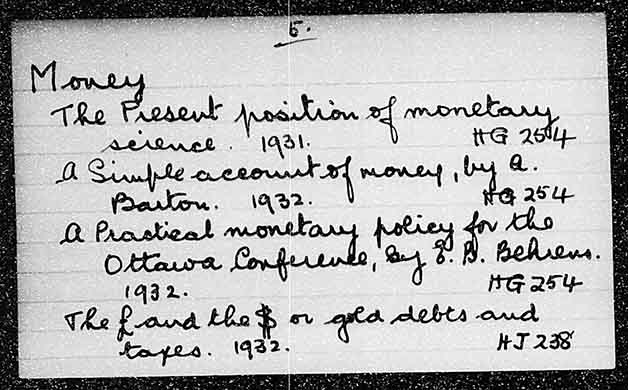 5.
Money
The Present position of monetary
science. 1931. HG 254
A Simple account of money, by A.
Barton. 1932. HG 254
A Practical monetary policy for the
Ottawa Conference, by E. B. Behrens.
1932. HG 254
The £ and the $ or gold debts and
taxes. 1932. HJ 238